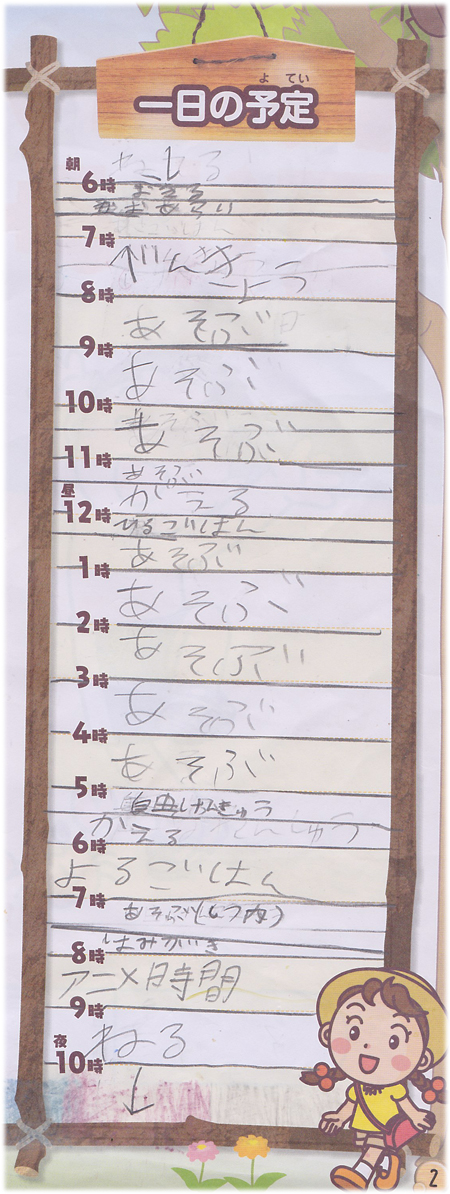 よ てい
一日の予定
朝
ねる
6時
おきる
かおあらい
7時
べんきょう
8時
あそぶ
9時
あそぶ
10時
あそぶ
11時
あそぶ
かえる
昼
12時
ひるごはん
あそぶ
1時
あそぶ
2時
あそぶ
3時
あそぶ
4時
あそぶ
5時
自由けんきゅう
かえる
6時
よるごはん
7時
あそぶ(しつ内)
8時
はみがき
アニメ時間
9時
ねる
夜
10時
2